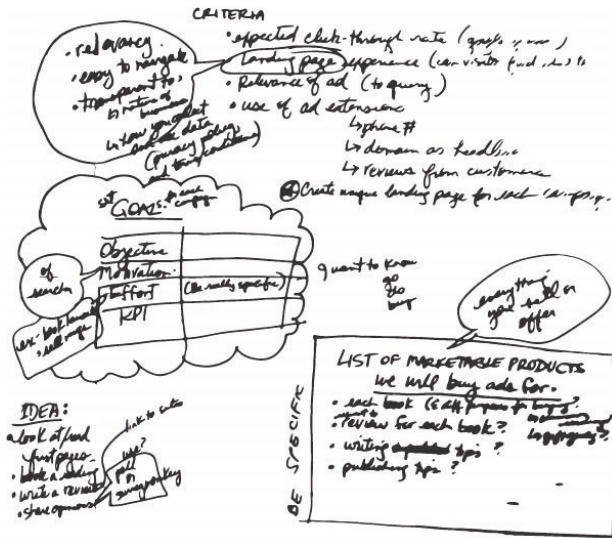 CRITERIA
• expected click-through rate (
• landing page experience (can visitors find
• Relevance of ad (to query)
• use of ad extensions
↳ phone #
↳ domain as headline
↳ reviews from customers
Create unique landing page for each campaign.
• relevancy
• easy to navigate
• transparent to:
↳ nature of business
↳ how you collect
and use data
(privacy policy
and terms conditions)
set GOALS: for each campaign
Objective
Motivation
Effort (be really specific)
KPI
of search
I want to know
go
do
buy
everything
you sell or
offer
LIST OF MARKETABLE PRODUCTS
we will buy ads for.
• each book
• review for each book?
• writing tips ?
• publishing tips ?
BE SPECIFIC
IDEA:
• look at
first pages
• book a reading
• write a review
• share opinions
link to
use?
poll
or
surveymonkey